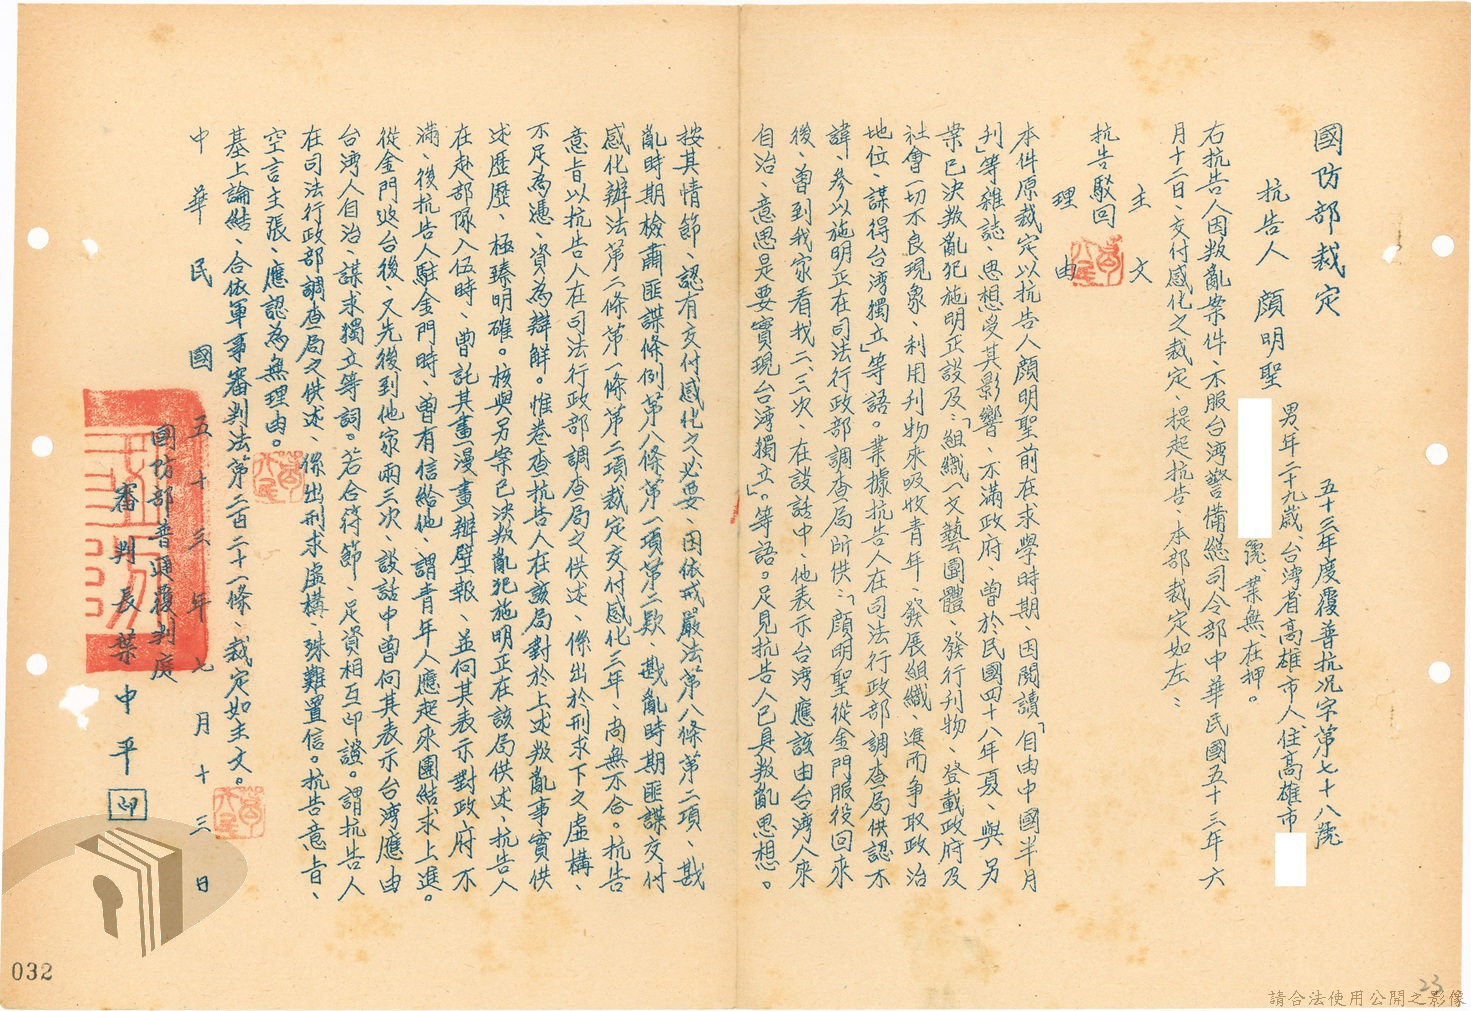 國防部裁定
五十三年度覆普抗況字第七十八號
抗告人 顏明聖 男年二十九歲、台湾省高雄市人、住高雄市
號、業無、在押。
右抗告人因叛亂案件、不服台湾警備總司令部中華民國五十三年六
月十二日、交付感化之裁定、提起抗告、本部裁定如左：
主文
抗告駁回
理由
本件原裁定以抗告人顏明聖前在求學時期、因閱讀「自由中國半月
刊」等雜誌、思想受其影響、不滿政府、曾於民國四十八年夏、與另
案已決叛亂犯施明正談及：「組織一文藝團體、發行刊物、登載政府及
社會一切不良現象、利用刊物來吸收青年、發展組織、進而爭取政治
地位、謀得台湾獨立」等語。業據抗告人在司法行政部調查局供認不
諱、參以施明正在司法行政部調查局所供：「顏明聖從金門服役回來
後、曾到我家看我二、三次、在談話中、他表示台湾應該由台湾人來
自治、意思是要實現台湾獨立」。等語。足見抗告人已具叛亂思想。
按其情節、認有交付感化之必要、因依戒嚴法第八條第二項、戡
亂時期檢肅匪諜條例第八條第一項第二款、戡亂時期匪諜交付
感化辦法第二條第一條第二項裁定交付感化三年、尚無不合。抗告
意旨以抗告人在司法行政部調查局之供述、係出於刑求下之虛構、
不足為憑、資為辯解。惟卷查抗告人在該局對於上述叛亂事實供
述歷歷、極臻明確。核與另案已決叛亂犯施明正在該局供述、抗告人
在赴部隊入伍時、曾託其畫漫畫辦壁報、並向其表示對政府不
滿、後抗告人駐金門時、曾有信給他、謂青年人應起來團結求上進。
從金門返台後、又先後到他家兩三次、談話中曾向其表示台湾應由
台湾人自治、謀求獨立等詞。若合符節、足資相互印證。謂抗告人
在司法行政部調查局之供述、係出刑求虛構、殊難置信。抗告意旨、
空言主張、應認為無理由。
基上論結、合依軍事審判法第二百二十一條、裁定如主文。
中華民國五十三年七月十三日
國防部普通覆判庭
審判長葉中平 印
032
23
請合法使用公開之影像